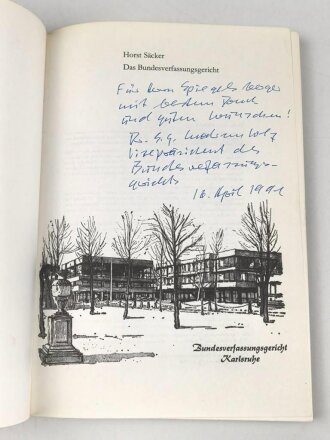 Horst Säcker
Das Bundesverfassungsgericht
Für Herrn Spiegelsberger
mit bestem Dank
und guten Wünschen!
Vizepräsident des
Bundesverfassungs-
gerichts
16. April 1991
Bundesverfassungsgericht
Karlsruhe